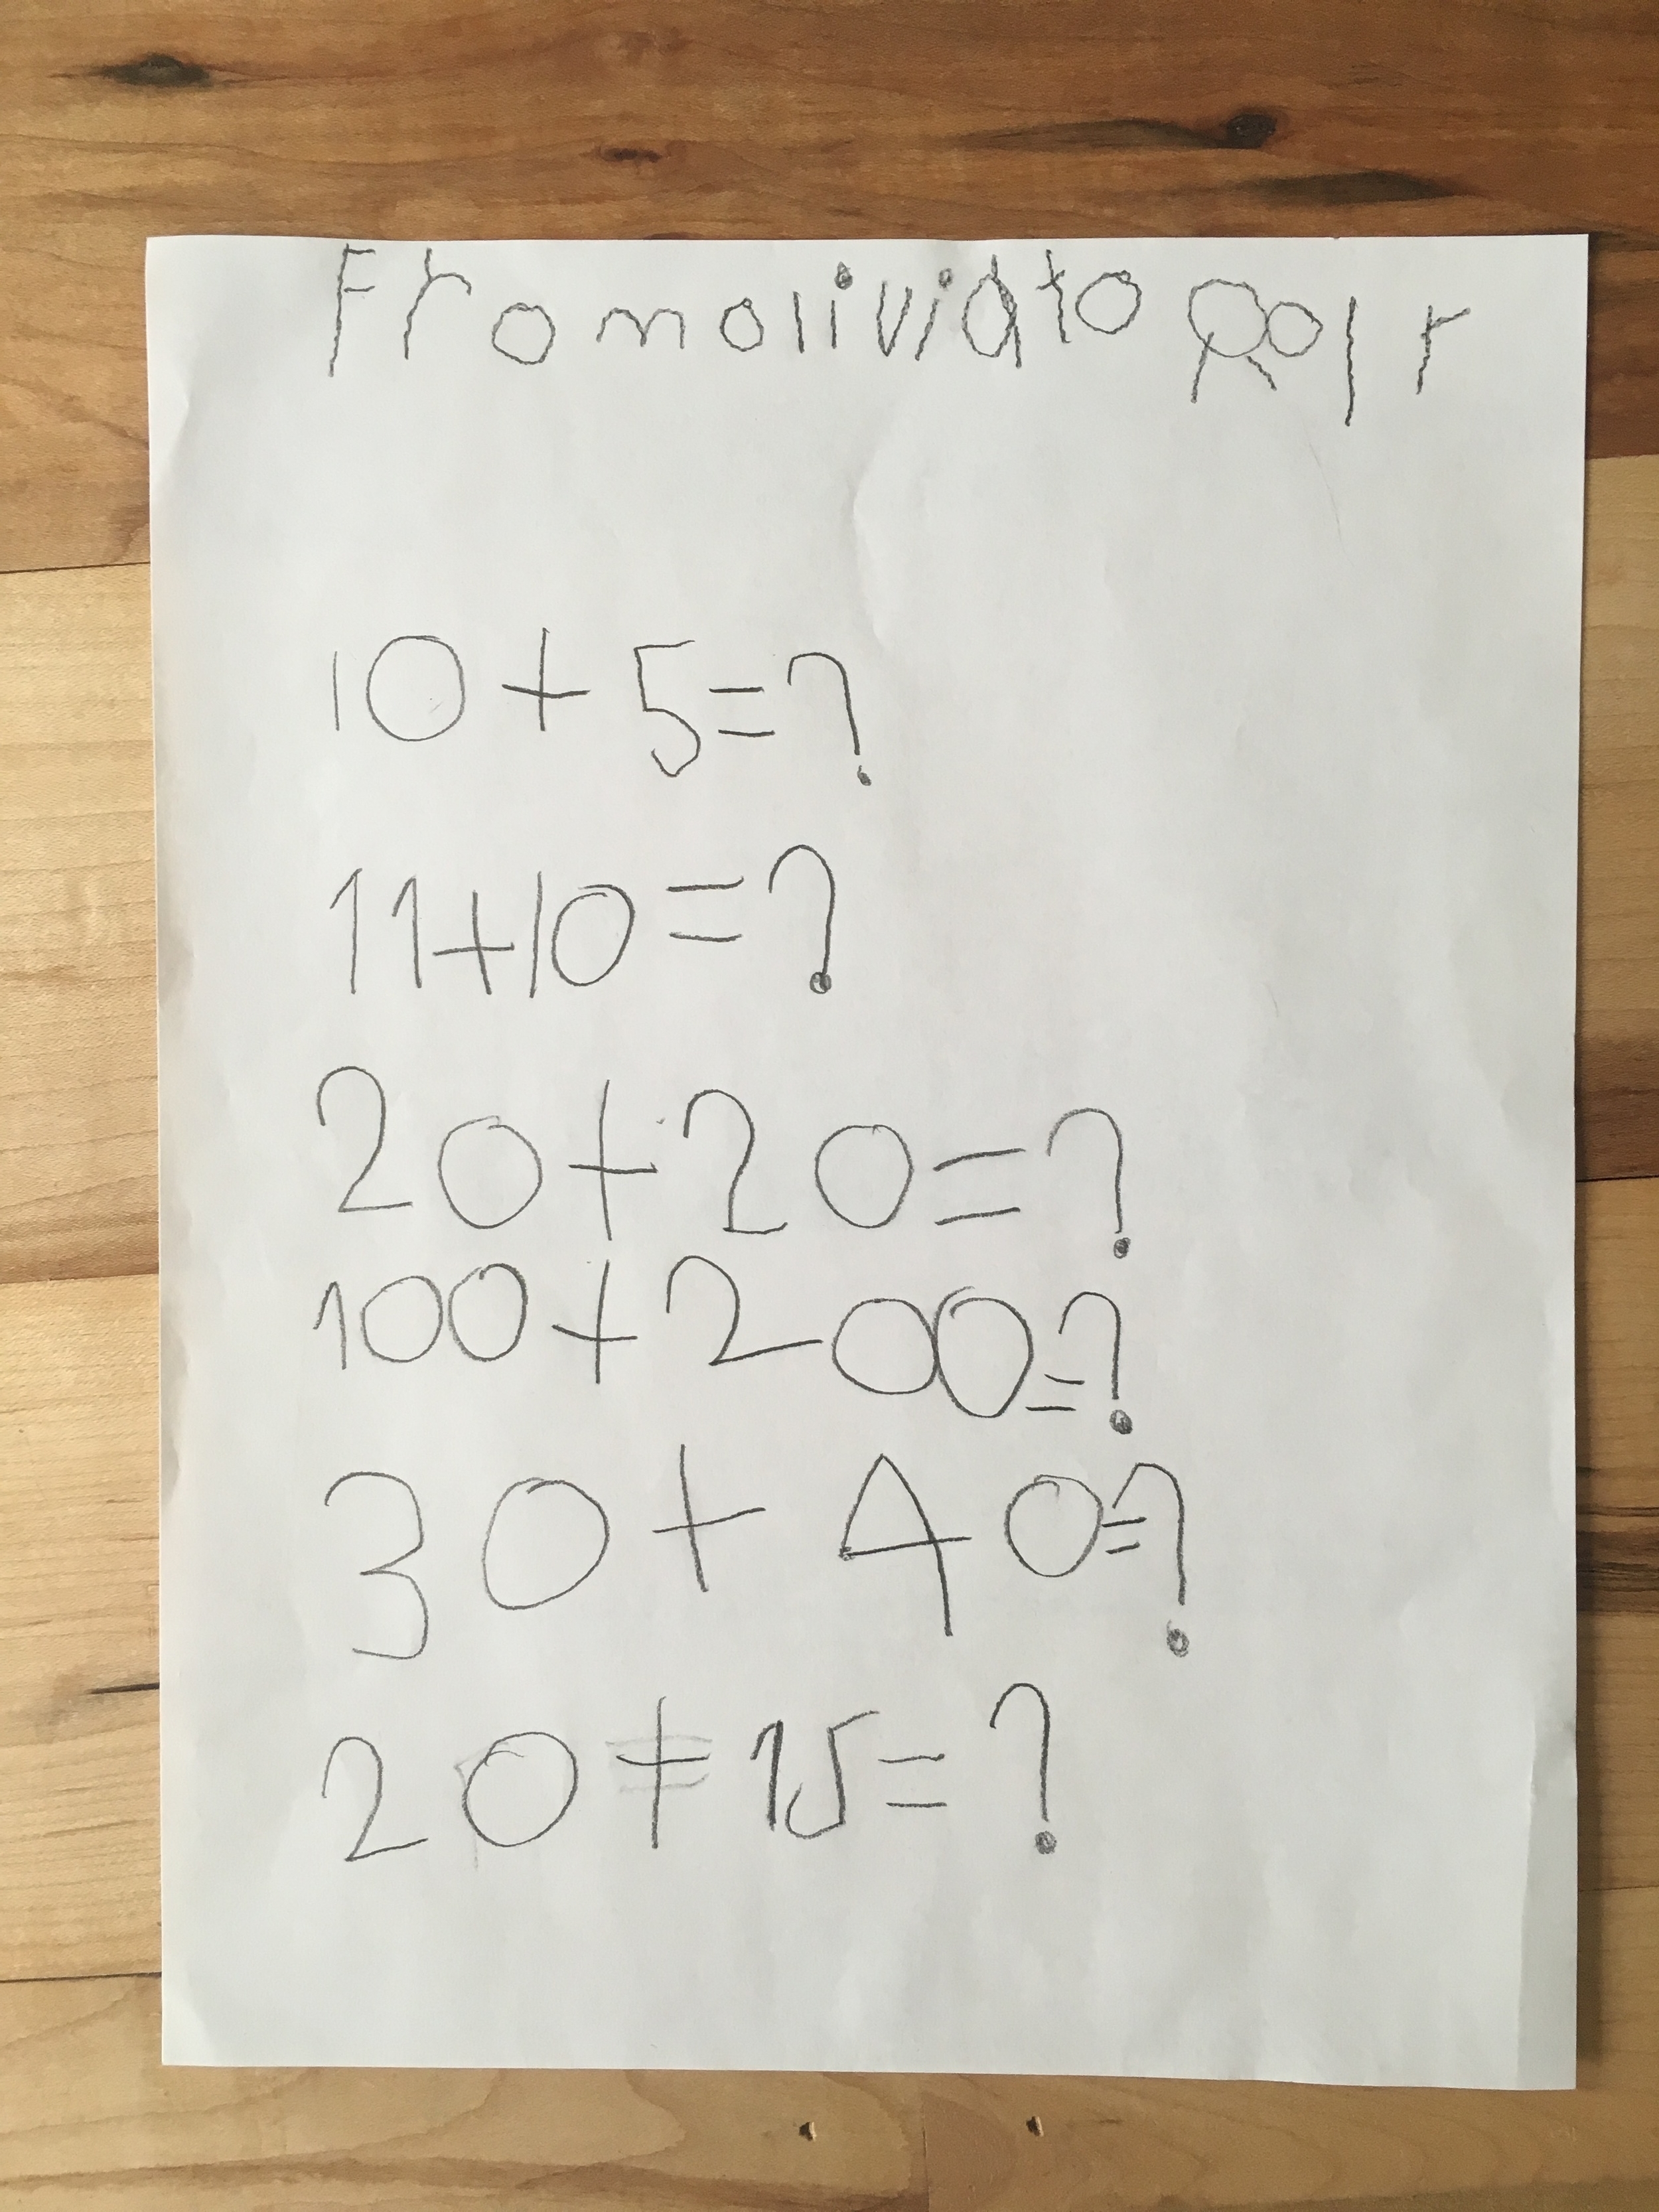 From olivia to
10+5=?
11+10=?
20+20=?
100+200=?
30+40=?
20+15=?